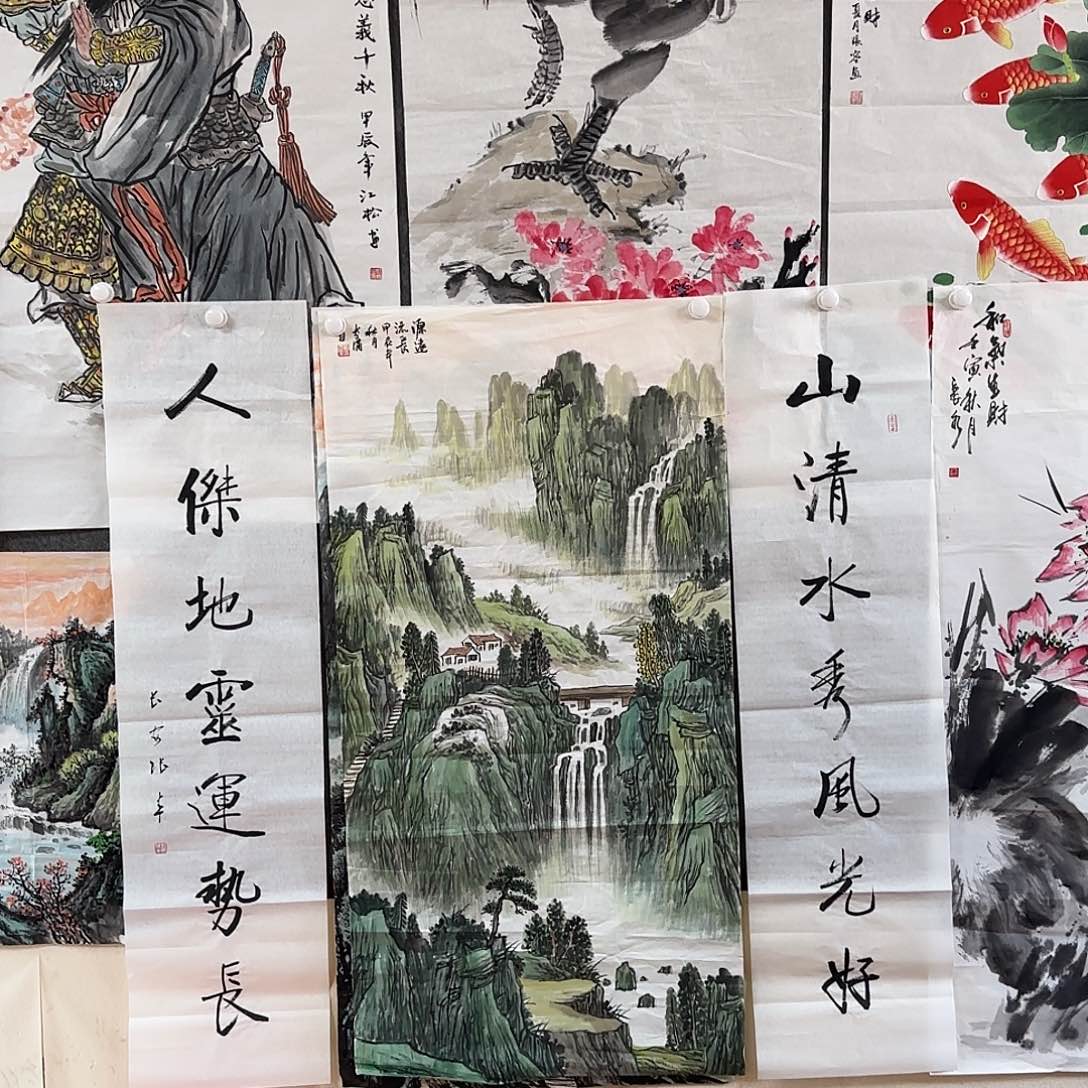 忠義千秋 甲辰年 江松畫
財
夏月張容畫
山清水秀風光好
人傑地靈運勢長
長安張卓
源遠
流長
甲辰年
秋月
和氣生財
壬寅秋月